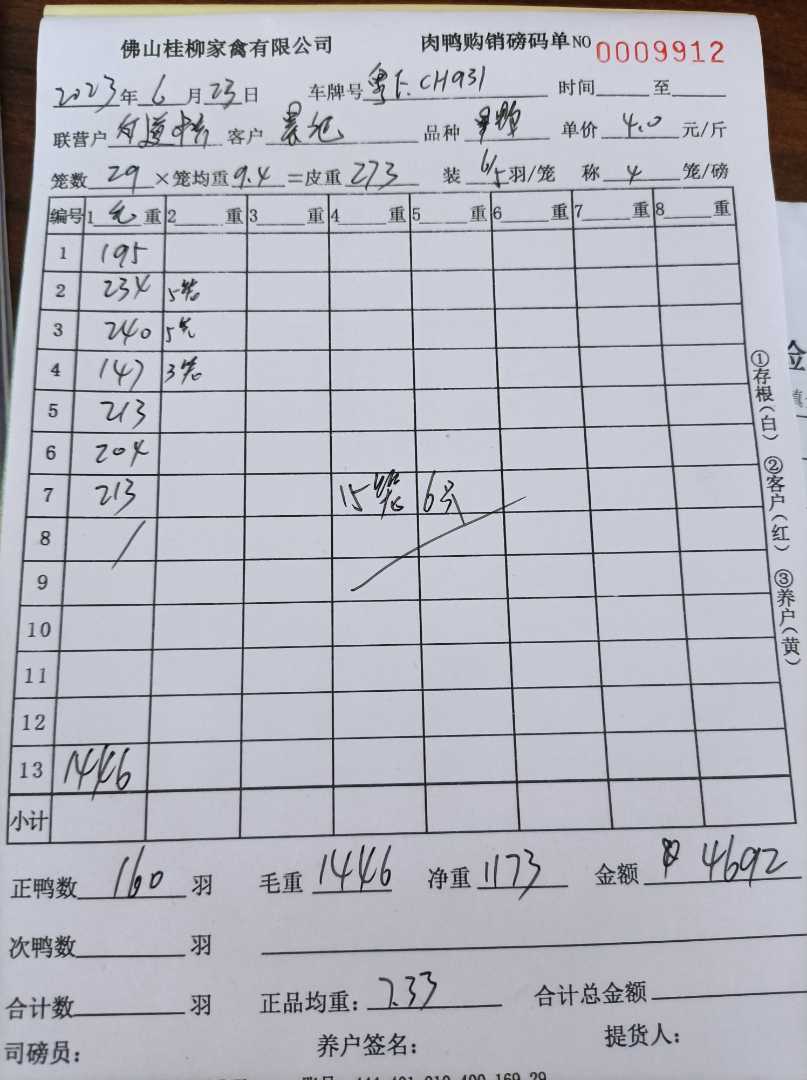 佛山桂柳家禽有限公司 肉鸭购销磅码单NO 0009912
2023年6月23日 车牌号 粤F.CH931 时间 至
联营户 客户 晨旭 品种 单价 4.0 元/斤
笼数 29 ×笼均重 9.4 =皮重 273 装 6/5 羽/笼 称 4 笼/磅
编号 1 毛 重 2 重 3 重 4 重 5 重 6 重 7 重 8 重
1 195
2 234 5笼
3 240 5笼
4 147 3笼
5 213
6 204
7 213 15笼 6只
8 /
9
10
11
12
13 1446
小计
①存根(白) ②客户(红) ③养户(黄)
正鸭数 160 羽 毛重 1446 净重 1173 金额 4692
次鸭数 羽
合计数 羽 正品均重: 7.33 合计总金额
司磅员: 养户签名: 提货人: